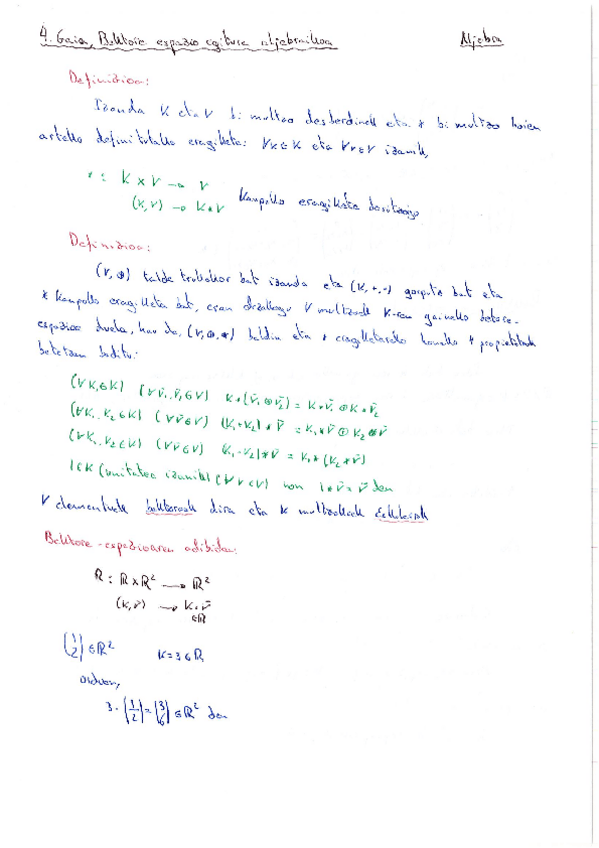 4. Gaia, Bektore espazio egitura aljebraikoa
Aljebra
Definizioa:
Izanda K eta V bi multzo desberdinak eta * bi multzo hoien
arteko definitutako eragiketa: ∀k∈K eta ∀v∈V izanik,
* : K × V → V
(k, v) → k*v
Kanpoko eragiketa deritzogu
Definizioa:
(V, ⊕) talde trukakor bat izanda eta (K, +, ·) gorputz bat eta
* kanpoko eragiketa bat, esan dezakegu V multzoak K-ren gaineko bektore-
espazioa duela, hau da, (V, ⊕, *) baldin eta * eragiketarako honako 4 propietateak
betetzen baditu:
(∀k∈K) (∀v̄₁, v̄₂∈V) k*(v̄₁ ⊕ v̄₂) = k*v̄₁ ⊕ k*v̄₂
(∀k₁, k₂∈K) (∀v̄∈V) (k₁+k₂)*v̄ = k₁*v̄ ⊕ k₂*v̄
(∀k₁, k₂∈K) (∀v̄∈V) (k₁·k₂)*v̄ = k₁*(k₂*v̄)
1∈K (unitatea izanik) (∀v∈V) non 1*v̄ = v̄ den
V elementuak bektoreak dira eta K multzokoak eskalarrak
Bektore-espazioaren adibidea:
R : ℝ×ℝ² → ℝ²
(k, v̄) → k·v̄
∈ℝ
(1 2) ∈ℝ² k=3∈ℝ
orduan,
3·(1 2) = (3 6) ∈ℝ² da